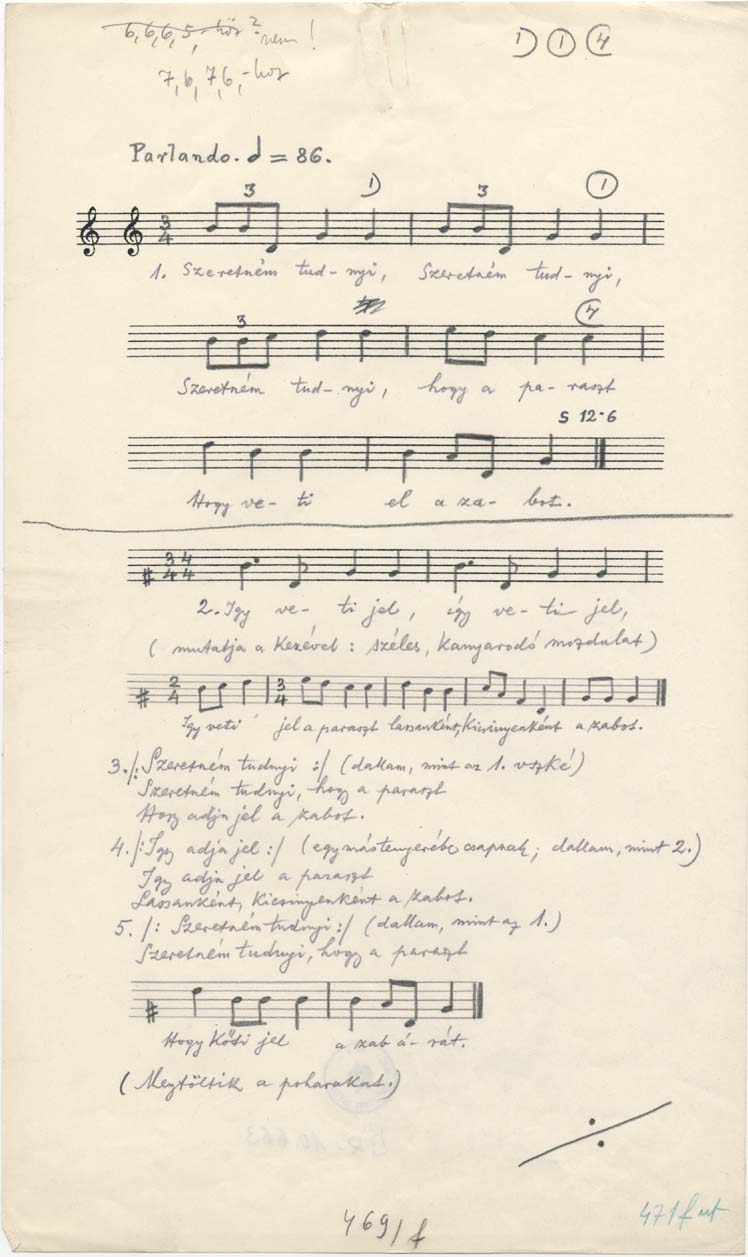 6,6,6,5,-höz? nem!
7,6,7,6,-hoz
1) 1 4
Parlando. = 86.
3 1) 3 1
3 4
1. Szeretném tud-nyi, Szeretném tud-nyi,
3 4
Szeretném tud-nyi, hogy a pa-raszt
S 12-6
Hogy ve-ti el a za-bot.
3 4 4 4
2. Igy ve-ti jel, így ve-ti jel,
(mutatja a kezével: széles, kanyarodó mozdulat)
2 4 3 4
Igy veti jel a paraszt lassanként, kicsinyenként a zabot.
3. /: Szeretném tudnyi :/ (dallam, mint az 1. vszké)
Szeretném tudnyi, hogy a paraszt
Hogy adja jel a zabot.
4. /: Igy adja jel :/ (egymás tenyerébe csapnak; dallam, mint 2.)
Igy adja jel a paraszt
Lassanként, kicsinyenként a zabot.
5. /: Szeretném tudnyi :/ (dallam, mint az 1.)
Szeretném tudnyi, hogy a paraszt
Hogy köti jel a zab á-rát.
(Megtöltik a poharakat.)
469/f
471 f